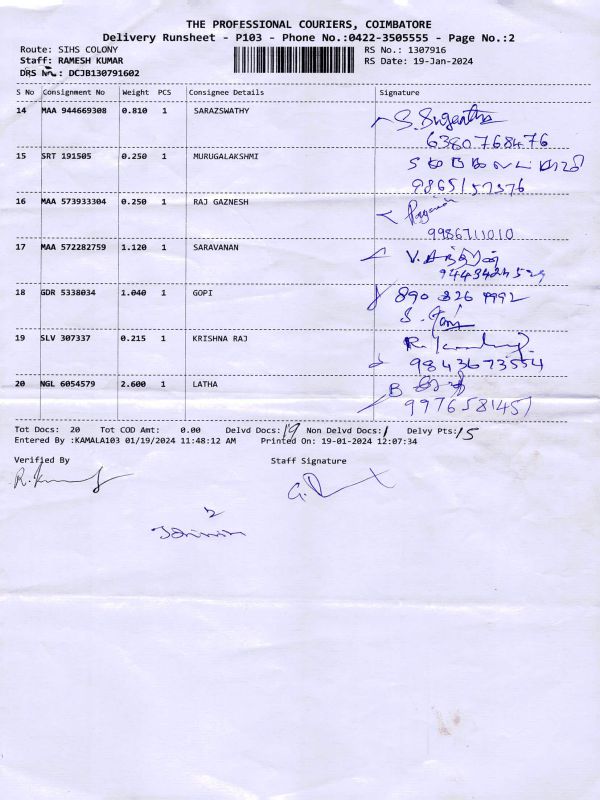 THE PROFESSIONAL COURIERS, COIMBATORE
Delivery Runsheet - P103 - Phone No.:0422-3505555 - Page No.:2
Route: SIHS COLONY RS No.: 1307916
Staff: RAMESH KUMAR RS Date: 19-Jan-2024
DRS No.: DCJB130791602
S No Consignment No Weight PCS Consignee Details Signature
14 MAA 944669308 0.810 1 SARAZSWATHY S. Sugantha
6380768476
15 SRT 191505 0.250 1 MURUGALAKSHMI
9865157376
16 MAA 573933304 0.250 1 RAJ GAZNESH
9986711010
17 MAA 572282759 1.120 1 SARAVANAN
9443424529
18 GDR 5338034 1.040 1 GOPI 890 826 9992
S. Gopi
19 SLV 307337 0.215 1 KRISHNA RAJ
9843673554
20 NGL 6054579 2.600 1 LATHA
9976581451
Tot Docs: 20 Tot COD Amt: 0.00 Delvd Docs:19 Non Delvd Docs:1 Delvy Pts:15
Entered By :KAMALA103 01/19/2024 11:48:12 AM Printed On: 19-01-2024 12:07:34
Verified By Staff Signature